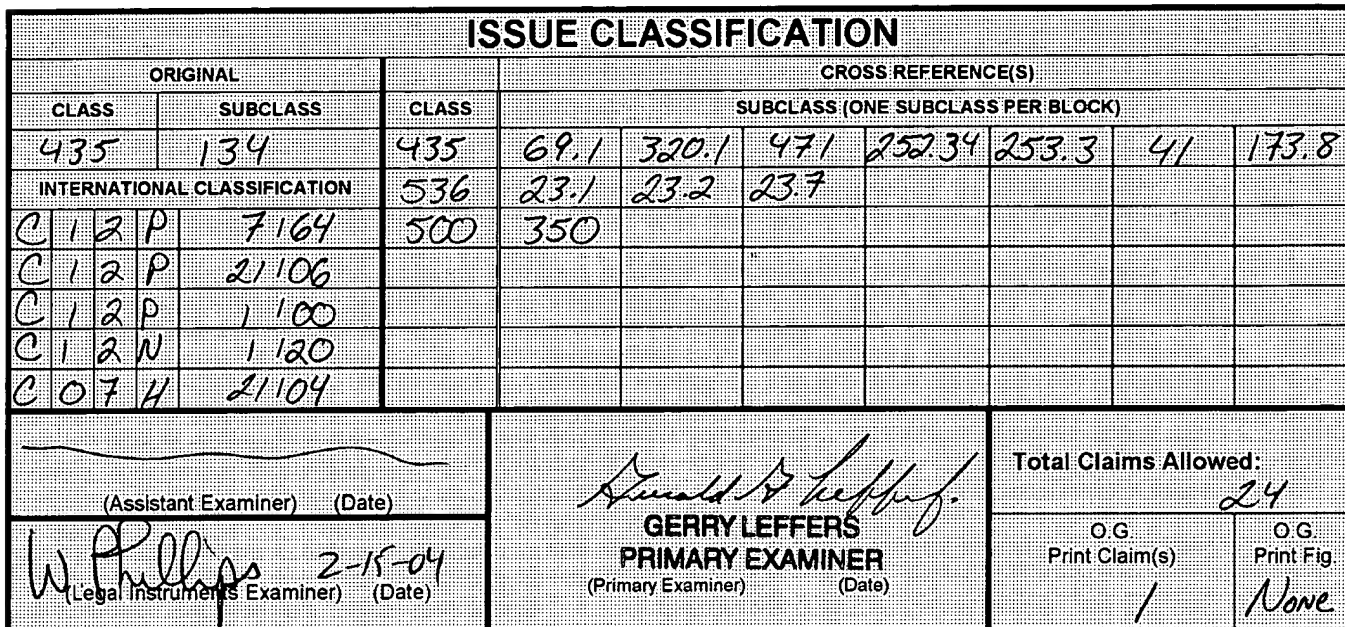 ISSUE CLASSIFICATION
ORIGINAL CROSS REFERENCE(S)
CLASS SUBCLASS CLASS SUBCLASS (ONE SUBCLASS PER BLOCK)
435 134 435 69.1 320.1 471 252.34 253.3 41 173.8
INTERNATIONAL CLASSIFICATION 536 23.1 23.2 23.7
C 1 2 P 7/64 500 350
C 1 2 P 21/06
C 1 2 P 1/00
C 1 2 N 1/20
C 0 7 H 21/04
(Assistant Examiner) (Date)
W. Phillips 2-15-04
(Legal Instruments Examiner) (Date)
Gerald G Leffers
GERRY LEFFERS
PRIMARY EXAMINER
(Primary Examiner) (Date)
Total Claims Allowed:
24
O.G. Print Claim(s)
1
O.G. Print Fig.
None